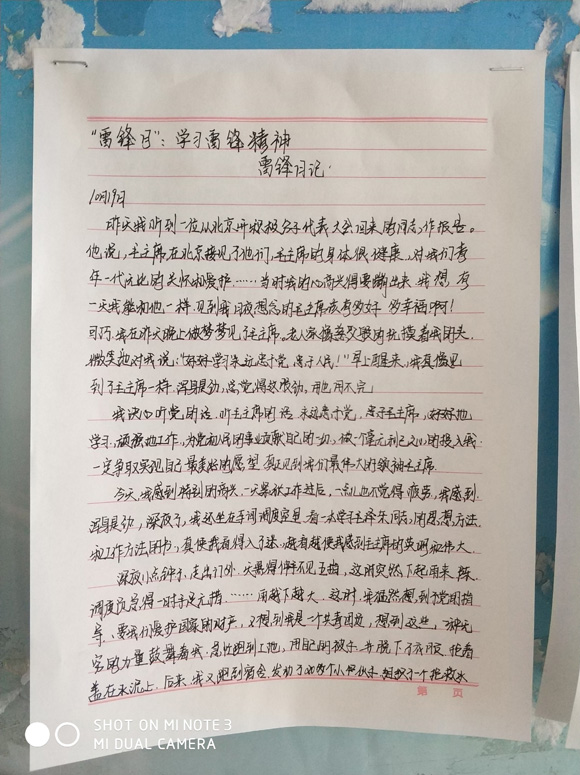 "雷锋日"：学习雷锋精神
雷锋日记
10月19日
昨天我听到一位从北京开积极分子代表大会回来的同志，作报告。
他说，毛主席在北京接见了他们，毛主席的身体很健康，对我们青
年一代无比的关怀和爱护……当时我的心高兴得要蹦出来。我想，有
一天我能和他一样，见到我日夜想念的毛主席该有多好，多幸福啊！
可巧，我在昨天晚上做梦梦见了毛主席。老人家像慈父般的抚摸着我的头，
微笑地对我说："好好学习，永远忠于党，忠于人民！"早上醒来，我真像见
到了毛主席一样，浑身是劲，总觉得这股劲，用也用不完。
我决心听党的话，听毛主席的话，永远忠于党，忠于毛主席，好好地
学习，顽强地工作，为党和人民的事业贡献自己的一切，做一个毫无利己之心的
一定争取实现自己最美好的愿望，真正见到我们最伟大的领袖毛主席。
今天，我感到特别的高兴，一天紧张工作过后，一点儿也不觉得疲劳，我感到
浑身是劲，深夜了，我还坐在车间调度室里，看一本学毛泽东同志的思想方法
和工作方法的书，真使我看得入了迷，越看越使我感到毛主席的英明和伟大。
深夜11点钟了，走出门外，天黑得伸手不见五指，这时突然下起雨来，陈
调度员急得一时手足无措……雨越下越大，这时，我猛然想到党的指
导，要我们爱护国家的财产，又想到我是一个共青团员，想到这些，一种无
穷的力量鼓舞着我，急忙跑到工地，用自己的被子，并脱下了衣服，抢着
盖在水泥上，后来，我又跑到宿舍，发动了20多个小伙子，组织了一个抢救水
第 页
SHOT ON MI NOTE 3
MI DUAL CAMERA